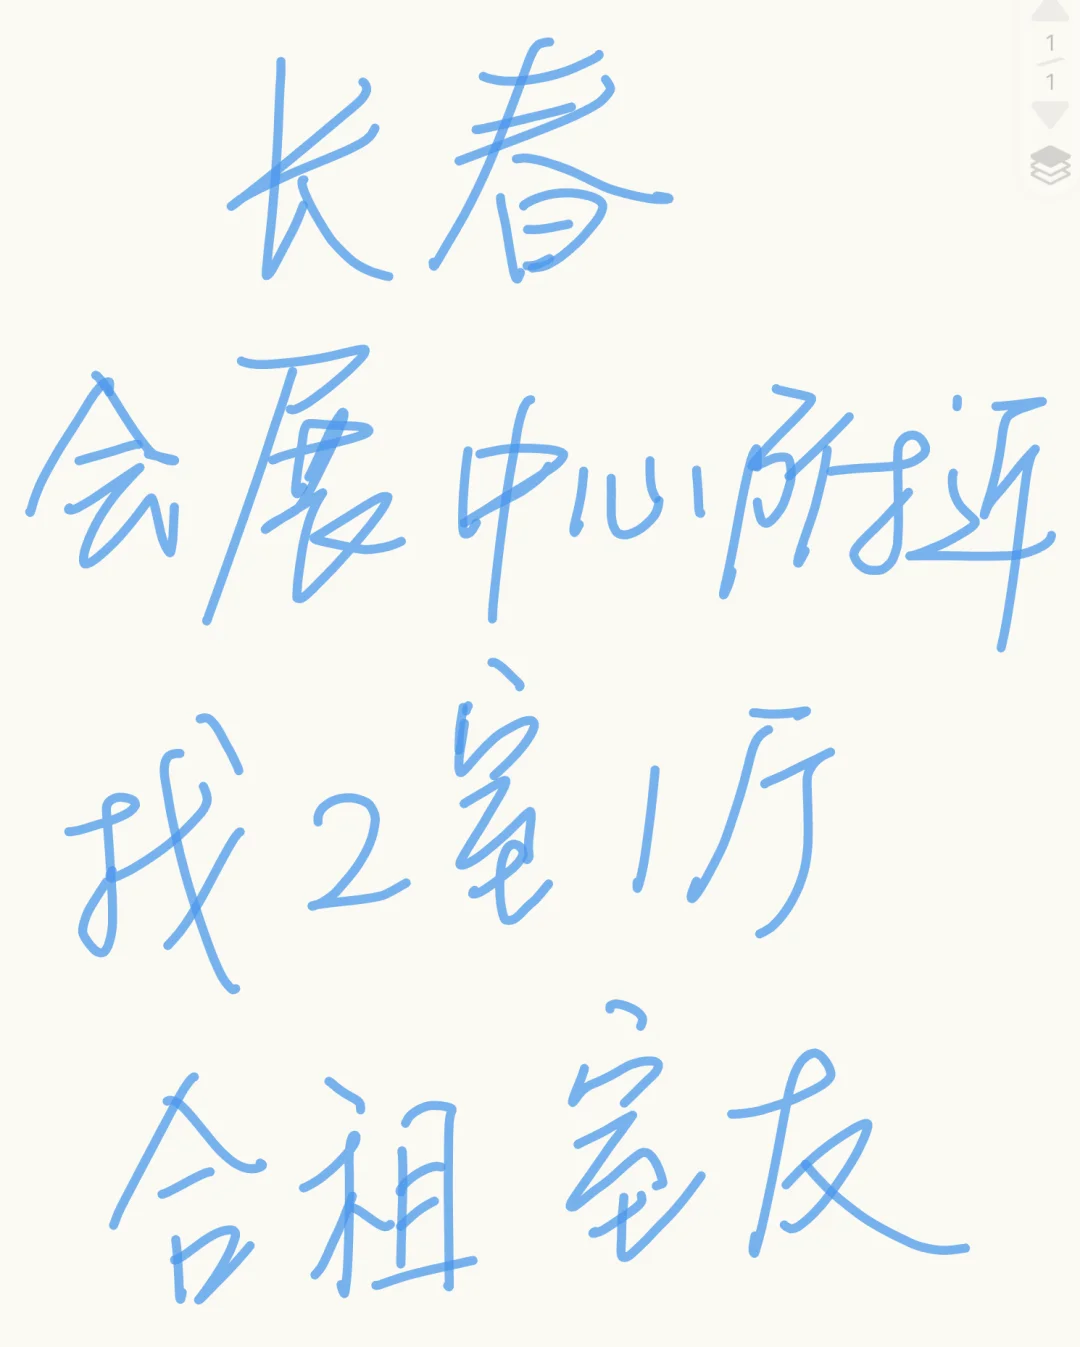 长春
会展中心附近
找2室1厅
合祖室友
1
1